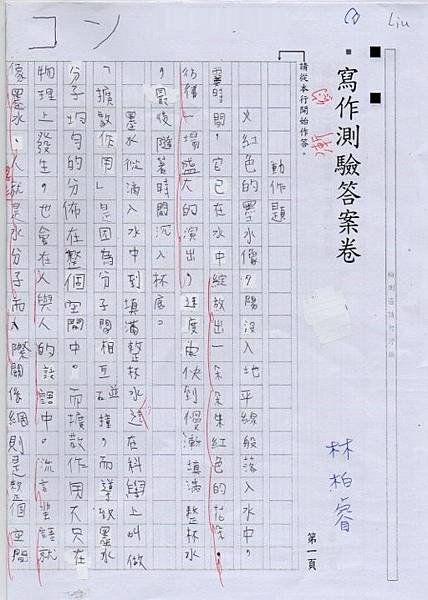 Liu
コン
寫作測驗答案卷
請從本行開始作答。
第一頁
林柏睿
動作題
火紅色的墨水像夕陽沒入地平線般落入水中,
霎時間,它已在水中綻放出一朵朵朱紅色的花朵,
彷彿一場盛大的演出,速度由快到慢漸填滿整杯水
,最後隨著時間沉入杯底。
墨水從滴入水中到填滿整杯水這在科學上叫做
「擴散作用」是因為分子間相互碰撞,而導致墨水
分子均勻的分佈在整個空間中。而擴散作用不只在
物理上發生,也會在人與人的談話中。流言蜚語就
像墨水,人就是水分子而人際關係網則是整個空間